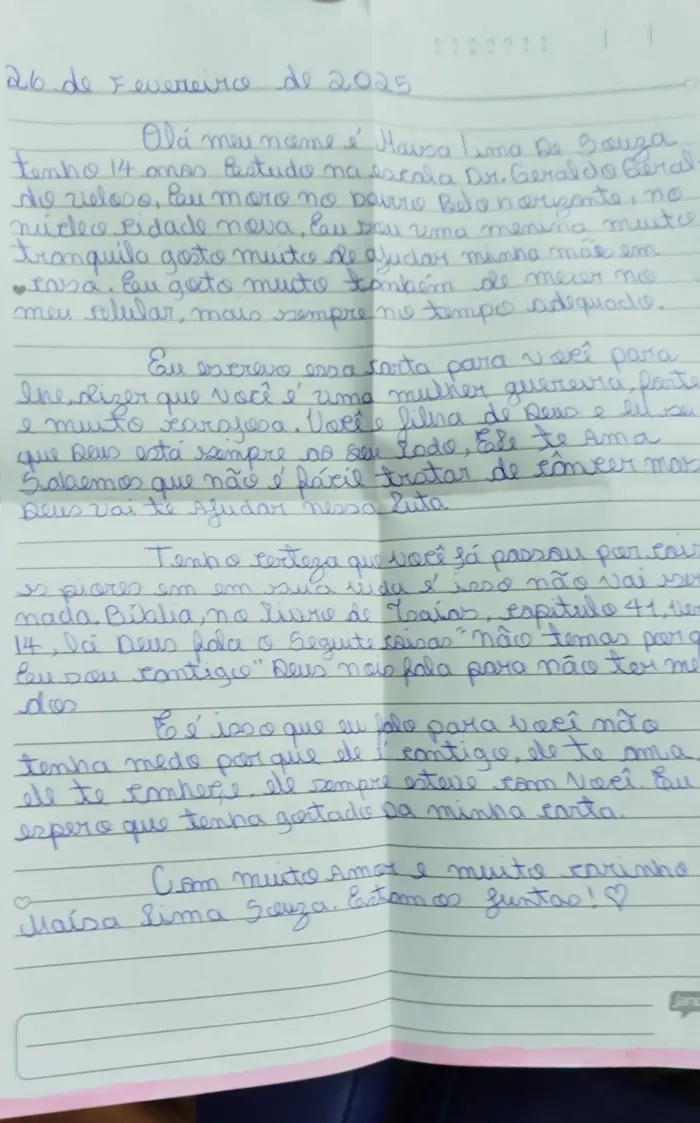 26 de Fevereiro de 2025
Olá meu nome é Maysa Lima De Souza
tenho 14 anos Estudo na escola Dr. Geraldo Geral-
do veloso, Eu moro no bairro Belo horizonte, no
núcleo cidade nova, Eu sou uma menina muito
tranquila gosto muito de ajudar minha mãe em
casa. Eu gosto muito também de mexer no
meu celular, mais sempre no tempo adequado.
Eu escrevo essa carta para você para
lhe, dizer que você é uma mulher guerreira, forte
e muito corajosa. Você é filha de Deus e eu sei
que Deus está sempre ao seu lado, Ele te Ama
Sabemos que não é fácil tratar de câncer mas
Deus vai te Ajudar nessa luta
Tenho certeza que você já passou por coi
s piores em em sua vida é isso não vai ser
nada. Bíblia, no livro de Isaías, capítulo 41, ve
14, lá Deus fala o Seguinte coisas "não temas porq
Eu sou contigo" Deus nos fala para não ter me
dos
E é isso que eu falo para você não
tenha medo porque ele é contigo, ele te ama
ele te conhece, ele sempre esteve com você. Eu
espero que tenha gostado Da minha carta.
Com muito Amor e muito carinho
Maísa Lima Souza. Estamos juntas! ♡